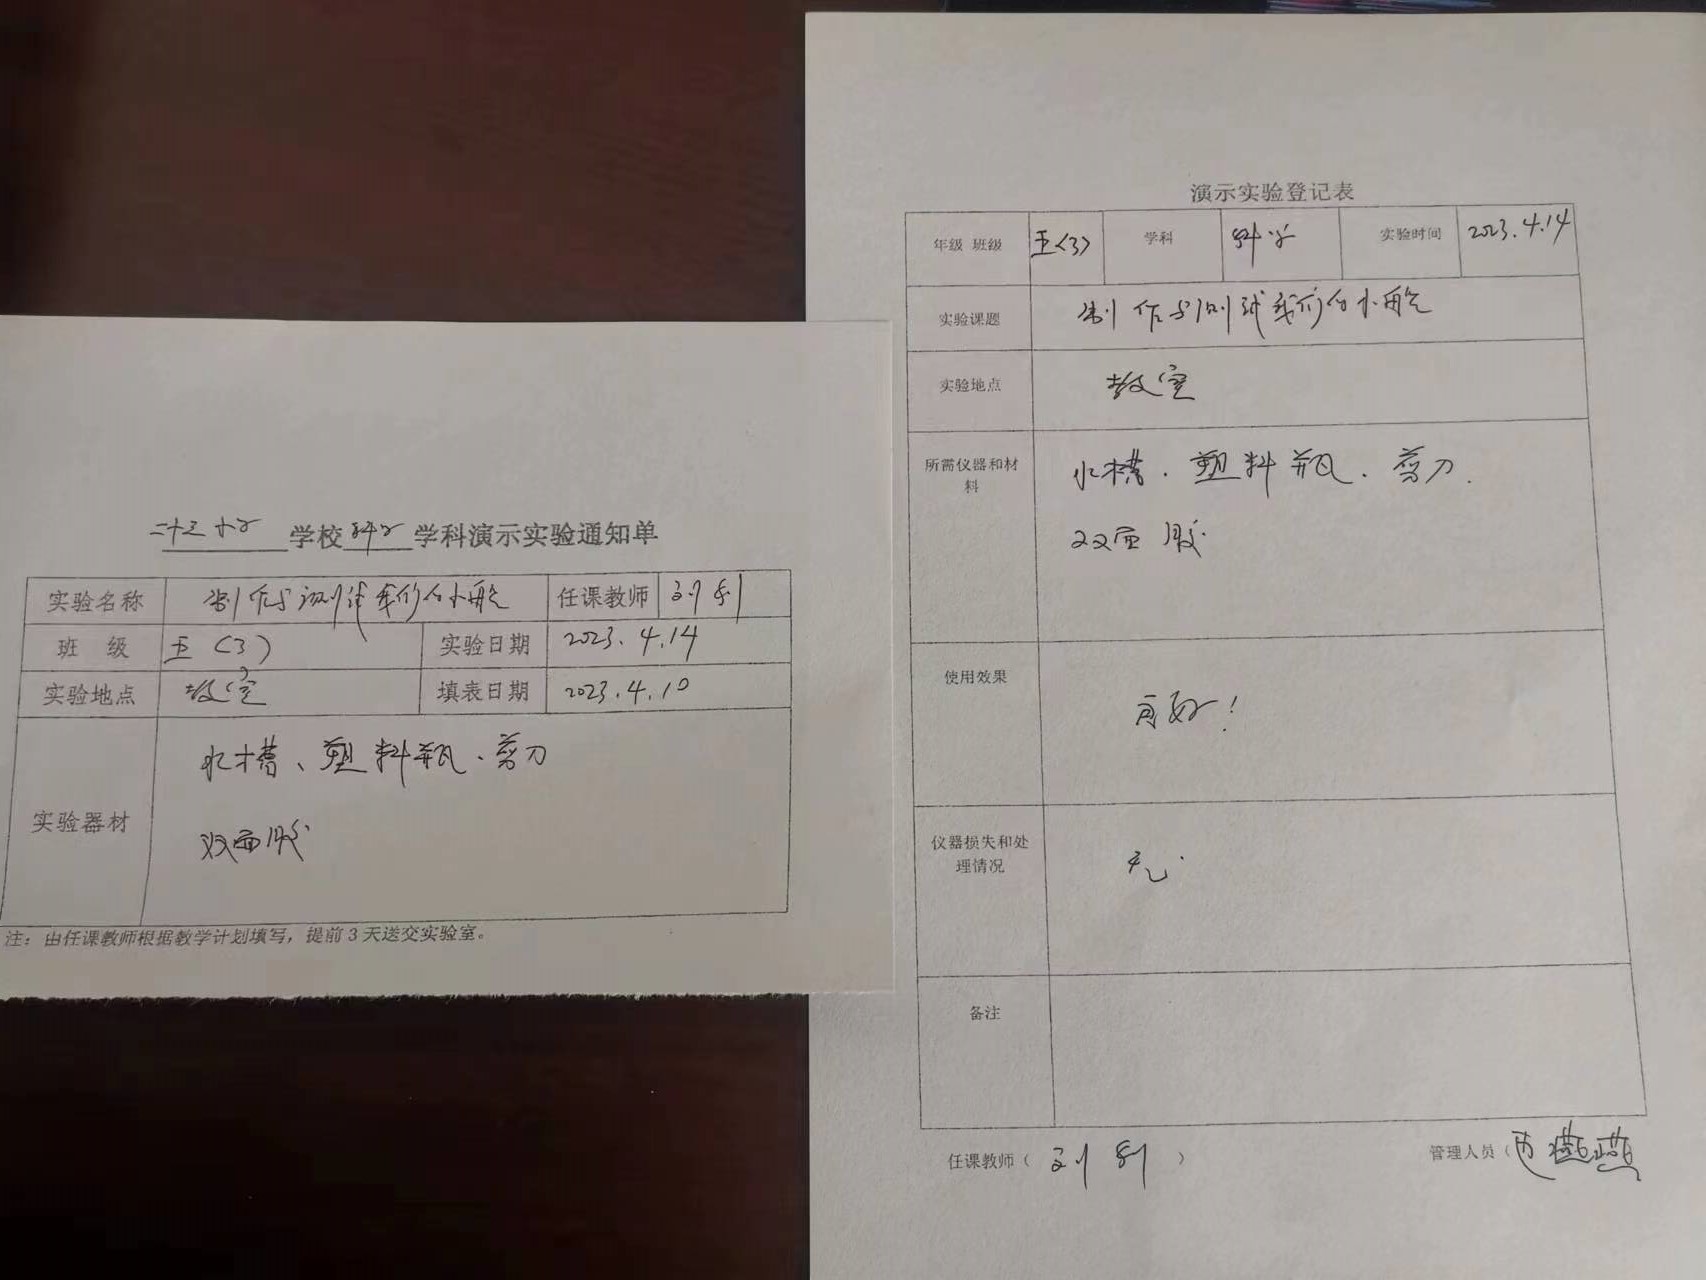 二十三小学 学校 科学 学科演示实验通知单
实验名称 制作与测试我们的小船 任课教师 刘利
班 级 五(3) 实验日期 2023.4.14
实验地点 教室 填表日期 2023.4.10
实验器材 水槽、塑料瓶、剪刀
双面胶
注:由任课教师根据教学计划填写,提前3天送交实验室。
演示实验登记表
年级 班级 五<3> 学科 科学 实验时间 2023.4.14
实验课题 制作与测试我们的小船
实验地点 教室
所需仪器和材
料
水槽、塑料瓶、剪刀.
双面胶
使用效果 良好!
仪器损失和处
理情况
无
备注
任课教师( 刘利 )
管理人员( 燕燕